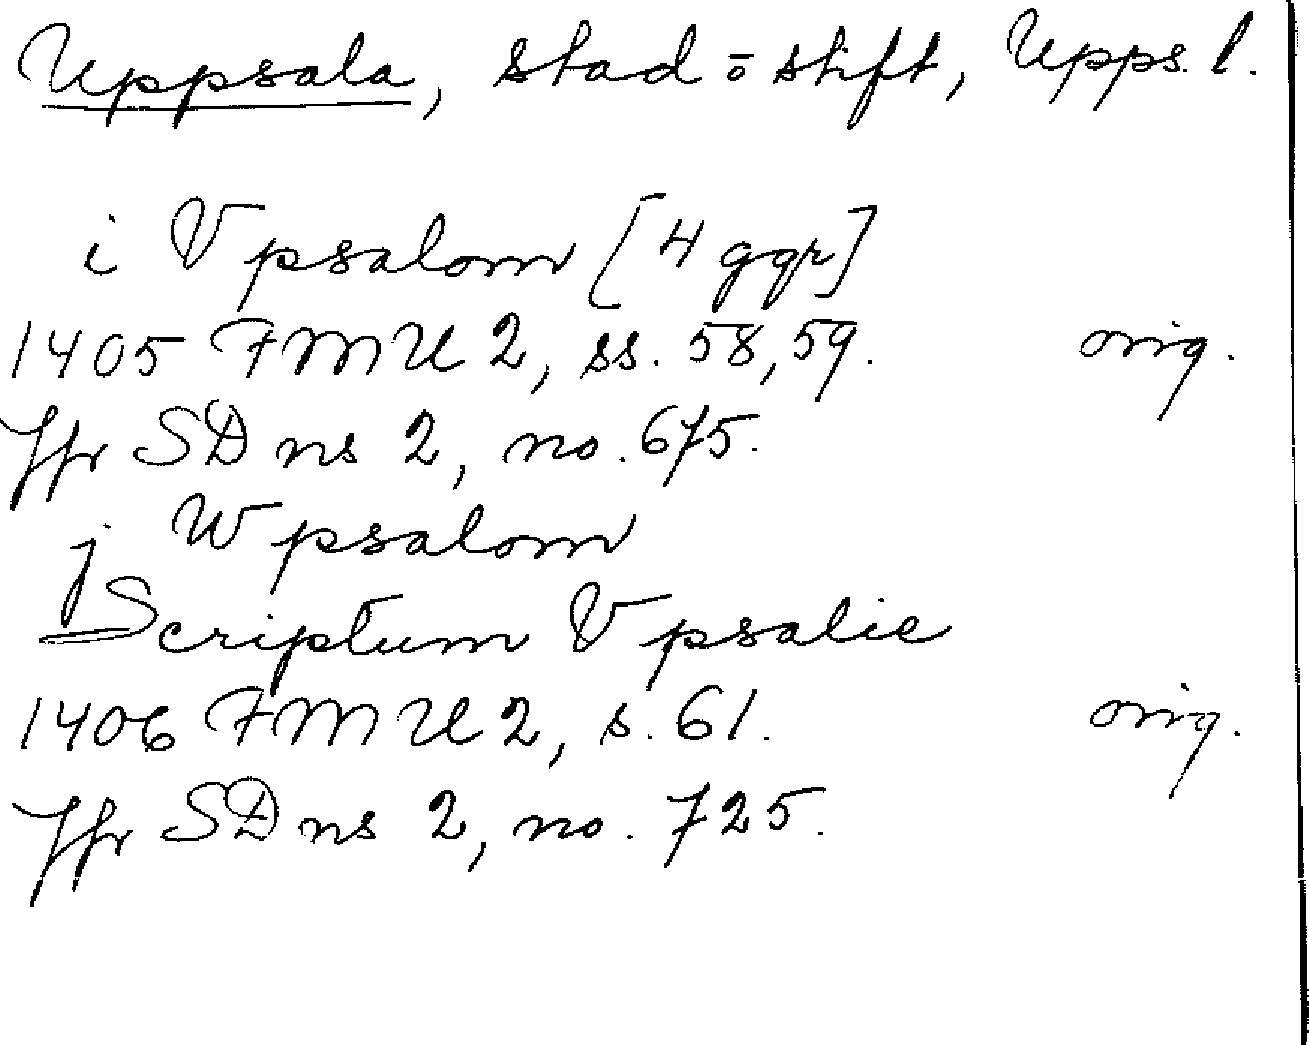 Uppsala, stad o stift, Upps. l.
i Vpsalom [4 ggr]
1405 FMU 2, ss. 58, 59. orig.
Jfr SD ns 2, no. 675.
j Wpsalom
Scriptum Vpsalie
1406 FMU 2, s. 61. orig.
Jfr SD ns 2, no. 725.